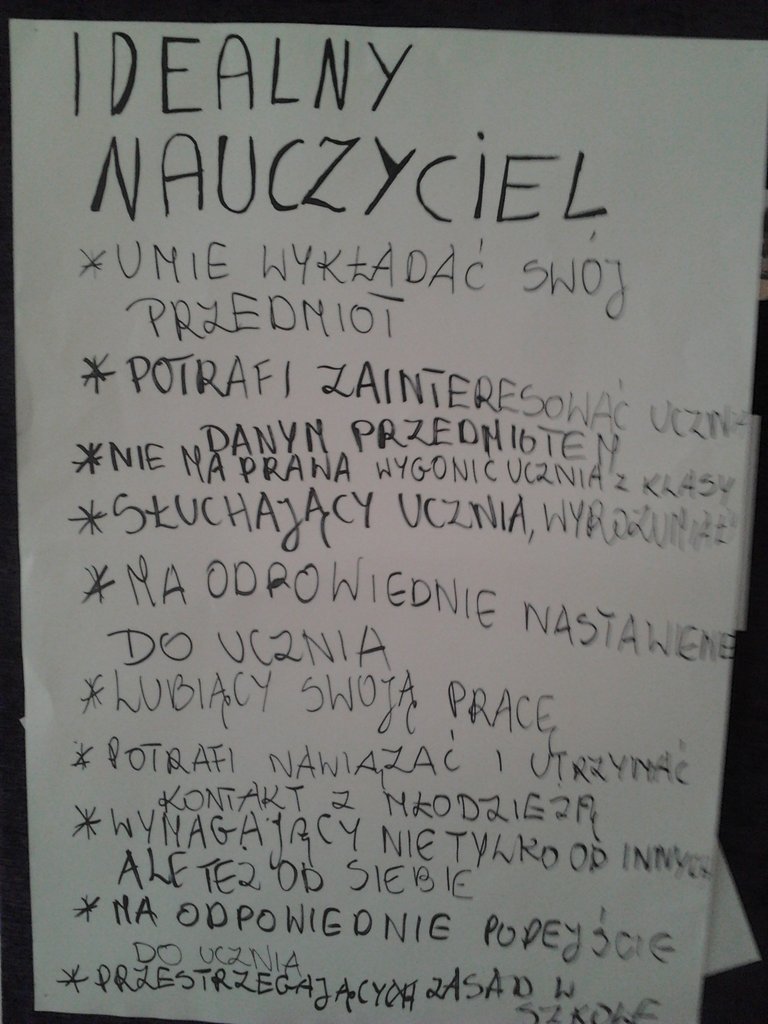 IDEALNY
NAUCZYCIEL
* UMIE WYKŁADAĆ SWÓJ
PRZEDMIOT
* POTRAFI ZAINTERESOWAĆ UCZNIA
DANYM PRZEDMIOTEM
* NIE MA PRAWA WYGONIĆ UCZNIA Z KLASY
* SŁUCHAJĄCY UCZNIA, WYROZUMIAŁ
* MA ODPOWIEDNIE NASTAWIENE
DO UCZNIA
* LUBIĄCY SWOJĄ PRACĘ
* POTRAFI NAWIĄZAĆ I UTRZYMAĆ
KONTAKT Z MŁODZIEŻĄ
* WYMAGAJĄCY NIE TYLKO OD INNYCH
ALE TEŻ OD SIEBIE
* MA ODPOWIEDNIE PODEJŚCIE
DO UCZNIA
* PRZESTRZEGAJĄCY ZASAD W
SZKOLE